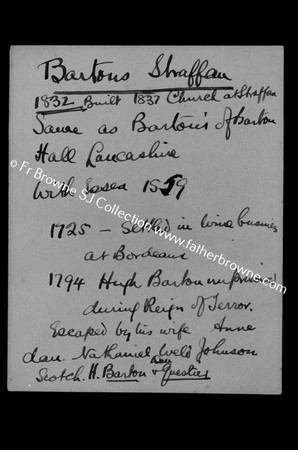 Bartons Straffan
1832 Built 1837 Church at Straffan
Same as Barton's of Barton
Hall Lancashire
With Essex 1559
1725 - Settled in wine business
at Bordeaux
1794 Hugh Barton imprisoned
during Reign of Terror.
Escaped by his wife Anne
dau. Nathaniel Weld Johnson
Scotch. H. Barton & Guestier
© Fr Browne SJ Collection www.fatherbrowne.com